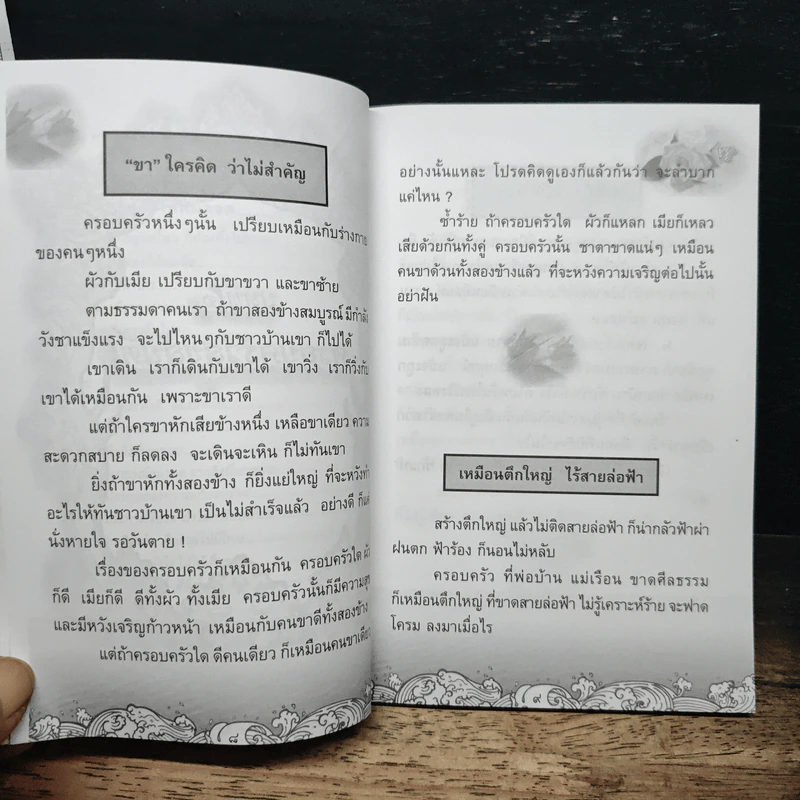 “ขา” ใครคิด ว่าไม่สำคัญ
ครอบครัวหนึ่งๆนั้น เปรียบเหมือนกับร่างกาย
ของคนๆหนึ่ง
ผัวกับเมีย เปรียบกับขาขวา และขาซ้าย
ตามธรรมดาคนเรา ถ้าขาสองข้างสมบูรณ์ มีกำลัง
วังชาแข็งแรง จะไปไหนๆกับชาวบ้านเขา ก็ไปได้
เขาเดิน เราก็เดินกับเขาได้ เขาวิ่ง เราก็วิ่งกับ
เขาได้เหมือนกัน เพราะขาเราดี
แต่ถ้าใครขาหักเสียข้างหนึ่ง เหลือขาเดียว ความ
สะดวกสบาย ก็ลดลง จะเดินจะเหิน ก็ไม่ทันเขา
ยิ่งถ้าขาหักทั้งสองข้าง ก็ยิ่งแย่ใหญ่ ที่จะหวังทำ
อะไรให้ทันชาวบ้านเขา เป็นไม่สำเร็จแล้ว อย่างดี ก็แค่
นั่งหายใจ รอวันตาย !
เรื่องของครอบครัวก็เหมือนกัน ครอบครัวใด ผัว
ก็ดี เมียก็ดี ดีทั้งผัว ทั้งเมีย ครอบครัวนั้นก็มีความสุข
และมีหวังเจริญก้าวหน้า เหมือนกับคนขาดีทั้งสองข้าง
แต่ถ้าครอบครัวใด ดีคนเดียว ก็เหมือนคนขาเดียว
๘
อย่างนั้นแหละ โปรดคิดดูเองก็แล้วกันว่า จะลำบาก
แค่ไหน ?
ซ้ำร้าย ถ้าครอบครัวใด ผัวก็แหลก เมียก็เหลว
เสียด้วยกันทั้งคู่ ครอบครัวนั้น ชาตาขาดแน่ๆ เหมือน
คนขาด้วนทั้งสองข้างแล้ว ที่จะหวังความเจริญต่อไปนั้น
อย่าฝัน
เหมือนตึกใหญ่ ไร้สายล่อฟ้า
สร้างตึกใหญ่ แล้วไม่ติดสายล่อฟ้า ก็น่ากลัวฟ้าผ่า
ฝนตก ฟ้าร้อง ก็นอนไม่หลับ
ครอบครัว ที่พ่อบ้าน แม่เรือน ขาดศีลธรรม
ก็เหมือนตึกใหญ่ ที่ขาดสายล่อฟ้า ไม่รู้เคราะห์ร้าย จะฟาด
โครม ลงมาเมื่อไร
๙